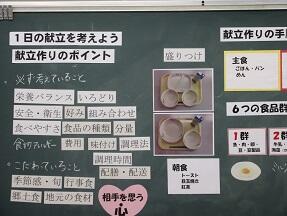 1日の献立を考えよう
献立作りのポイント
必ず考えていること
栄養バランス いろどり
安全・衛生 好み 組み合わせ
食べやすさ 食品の種類 分量
費用 味付け 調理法
調理時間
こだわっていること 配膳・配送
季節感・旬 行事食
郷土食 地元の食材
相手を思う
心
盛りつけ
朝食
トースト
目玉焼き
紅茶
献立作りの手
主食
ごはん・パン
めん
6つの食品群
1群
魚・肉・卵・
豆・豆製品
2群
牛乳・
海藻・